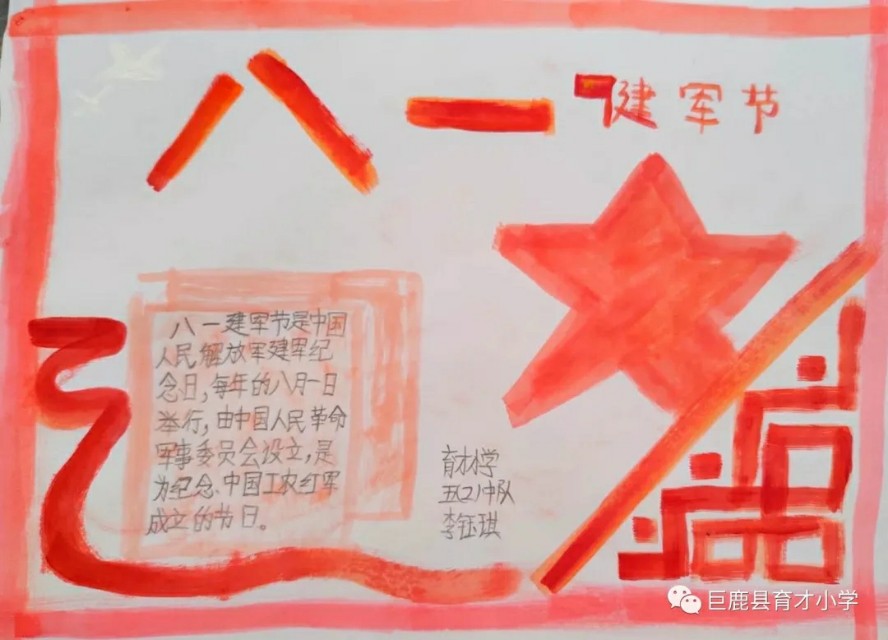 八一健军节
八一建军节是中国
人民解放军建军纪
念日，每年的八月一日
举行，由中国人民革命
军事委员会设立，是
为纪念、中国工农红军
成立的节日。
育才小学
五(2)中队
李钰琪
巨鹿县育才小学